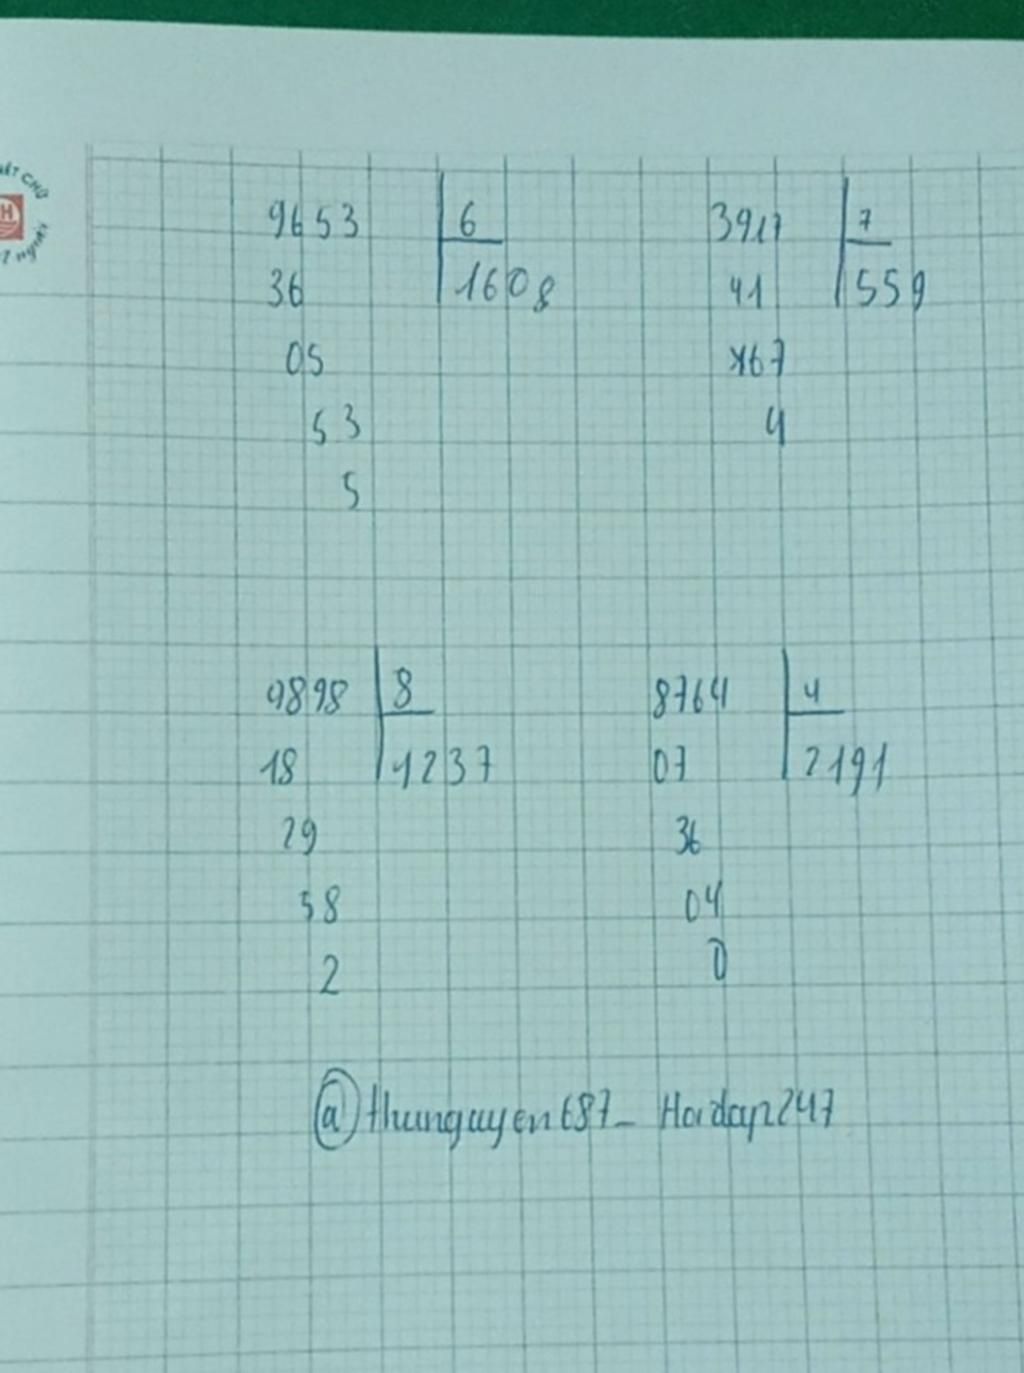 9653 6
36 1608
05
53
5
3917 7
41 559
67
4
9898 8
18 1237
29
58
2
8764 4
07 2191
36
04
0
@thunguyen687_ Hoidap247